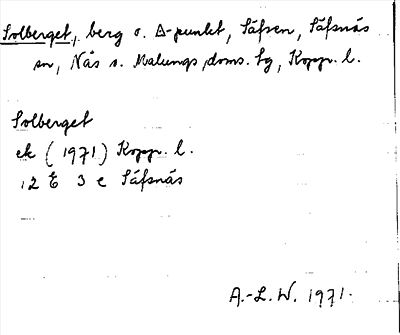 Solberget, berg o. Δ-punkt, Säfsen, Säfsnäs
sn, Nås o. Malungs doms. hg, Kopp. l.
Solberget
ek (1971) Kopp. l.
12 E 3 e Säfsnäs
A.-L. W. 1971.